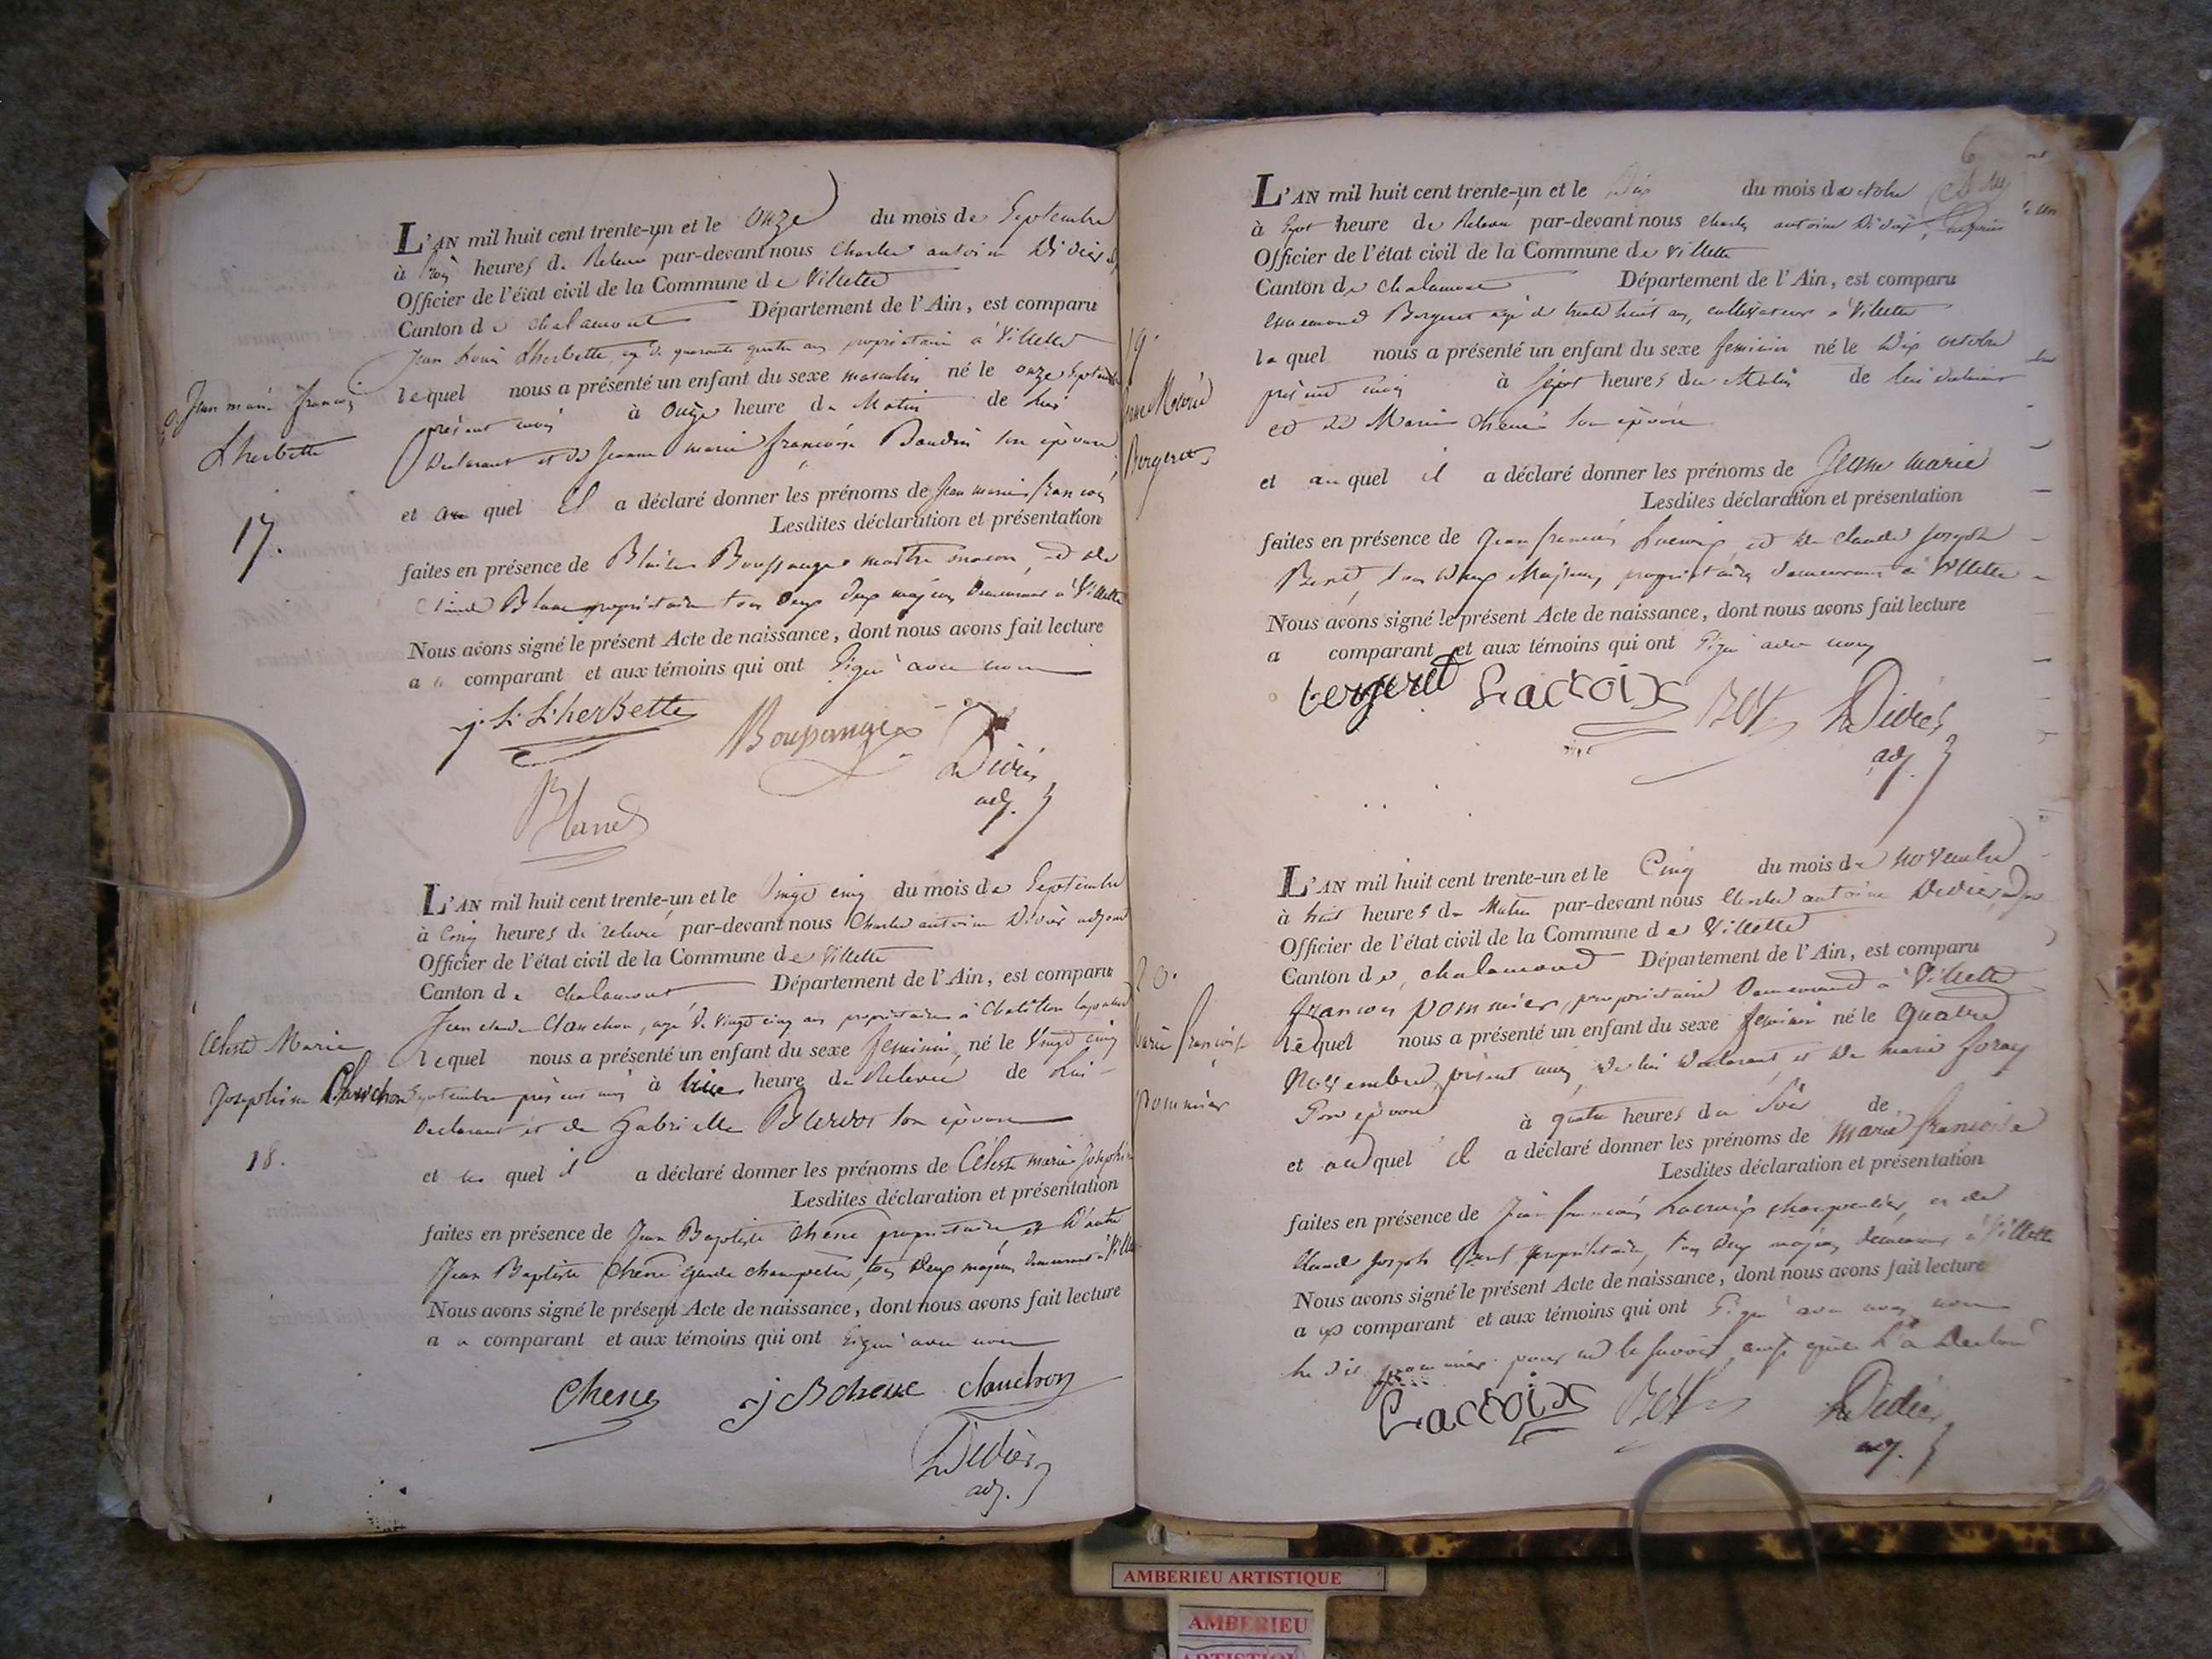 L'AN mil huit cent trente-un et le onze du mois de Septembre
à trois heures de Relevee par-devant nous Charles antoine Didier adj
Officier de l'état civil de la Commune de Villette
Canton de chalamont Département de l'Ain, est comparu
Jean Louis Lherbette, agé de quarante quatre ans propriétaire à Villette
lequel nous a présenté un enfant du sexe masculin né le onze Septembre
présent mois à onze heure du Matin de lui
Declarant et de Jeanne marie françoise Baudin son épouse
et au quel il a déclaré donner les prénoms de Jean marie françois
Lesdites déclaration et présentation
faites en présence de Boussanges maitre macon, et de
Blanc propriétaire tous deux majeurs demeurant à Villette
Nous avons signé le présent Acte de naissance, dont nous avons fait lecture
a comparant et aux témoins qui ont signé avec nous
j. L. Lherbette
Boussanges
Didier
adj.
Blanc
Jean marie françois
Lherbette
17.
L'AN mil huit cent trente-un et le Vingt cinq du mois de Septembre
à Cinq heures de relevée par-devant nous Charles antoine Didier adjoint
Officier de l'état civil de la Commune de Villette
Canton de chalamont Département de l'Ain, est comparu
Jean claude Clanchon, agé de vingt cinq ans propriétaire à Chatillon lapalud
lequel nous a présenté un enfant du sexe feminin, né le Vingt cinq
Septembre présent mois à heure de Relevee de Lui
Declarant et de Gabrielle son épouse
et au quel il a déclaré donner les prénoms de Celeste marie Josephine
Lesdites déclaration et présentation
faites en présence de Jean Baptiste chêne propriétaire et d'autre
Jean Baptiste Chêne garde champetre, tous deux majeurs demeurant à Villette
Nous avons signé le présent Acte de naissance, dont nous avons fait lecture
a comparant et aux témoins qui ont signé avec nous
Chene j B chene clanchon
Didier
adj.
Celeste Marie
Josephine Clanchon
18.
6
L'AN mil huit cent trente-un et le Dix du mois d'octobre
à Sept heure de Relevee par-devant nous charles antoine Didier,
Officier de l'état civil de la Commune de Villette
Canton de chalamont Département de l'Ain, est comparu
Bergeret agé de trente huit ans, cultivateur à Villette
lequel nous a présenté un enfant du sexe feminin né le dix octobre
présent mois à Sept heures du Matin de lui declarant
et de Marie chene son épouse
et au quel il a déclaré donner les prénoms de Jeanne marie
Lesdites déclaration et présentation
faites en présence de Jean francois Lacroix et de claude joseph
tous deux Majeurs, propriétaires demeurant à Villette
Nous avons signé le présent Acte de naissance, dont nous avons fait lecture
a comparant et aux témoins qui ont signé avec nous
bergeret Lacroix Didier
adj.
19.
Marie
Bergeret
L'AN mil huit cent trente-un et le Cinq du mois de novembre
à huit heures du Matin par-devant nous Charles antoine Didier adjo
Officier de l'état civil de la Commune de Villette
Canton de chalamond Département de l'Ain, est comparu
francois pommier, propriétaire Demeurant à Villette
lequel nous a présenté un enfant du sexe feminin né le Quatre
Novembre présent mois, de lui declarant, et de marie foray
Son épouse à quatre heures du Soir de
et au quel il a déclaré donner les prénoms de marie françoise
Lesdites déclaration et présentation
faites en présence de Jean francois Lacroix charpentier, et de
Claude Joseph propriétaire, tous deux majeurs demeurant à Villette
Nous avons signé le présent Acte de naissance, dont nous avons fait lecture
a comparant et aux témoins qui ont signé avec nous non
le dit pommier pour ne le savoir, ainsi qu'il l'a declaré
Lacroix Didier
adj.
20.
marie françoise
pommier
AMBERIEU ARTISTIQUE
AMBERIEU
ARTISTIQUE